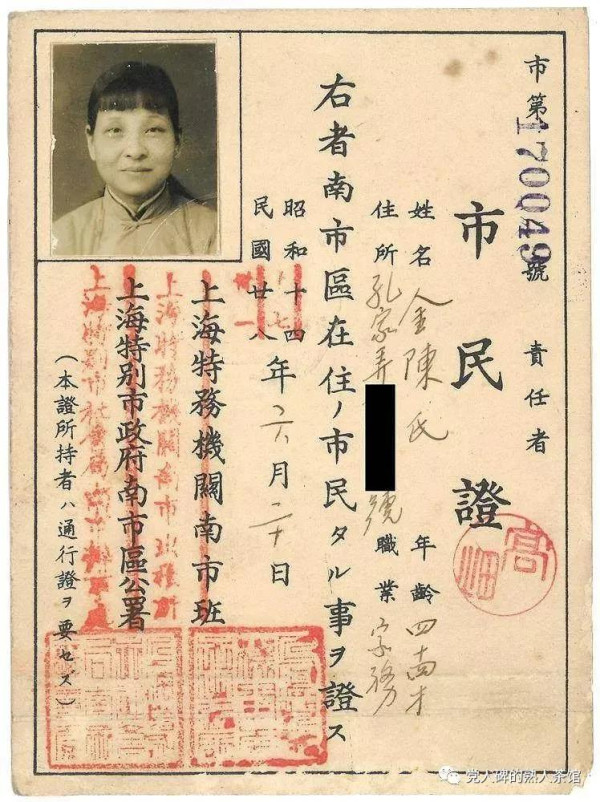 市第170049號
責任者
市民證
高畑
姓名 金陳氏 年齡 四十才
住所 孔家弄 號 職業 家務
右者南市區在住ノ市民タル事ヲ證ス
昭和十四
民國廿八
年六月二十日
七
一
上海特務機關南市班
上海特別市政府南市區公署
（本證所持者ハ通行證ヲ要セズ）
党人碑的熟人茶馆